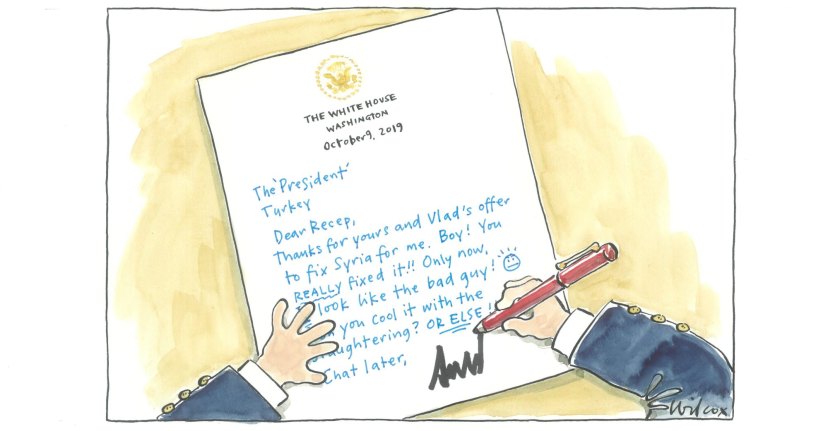 THE WHITE HOUSE
WASHINGTON
October 9, 2019
The 'President'
Turkey
Dear Recep,
Thanks for yours and Vlad's offer
to fix Syria for me. Boy! You
REALLY fixed it!! Only now,
look like the bad guy!
you cool it with the
slaughtering? OR ELSE!!
Chat later,
Wilcox